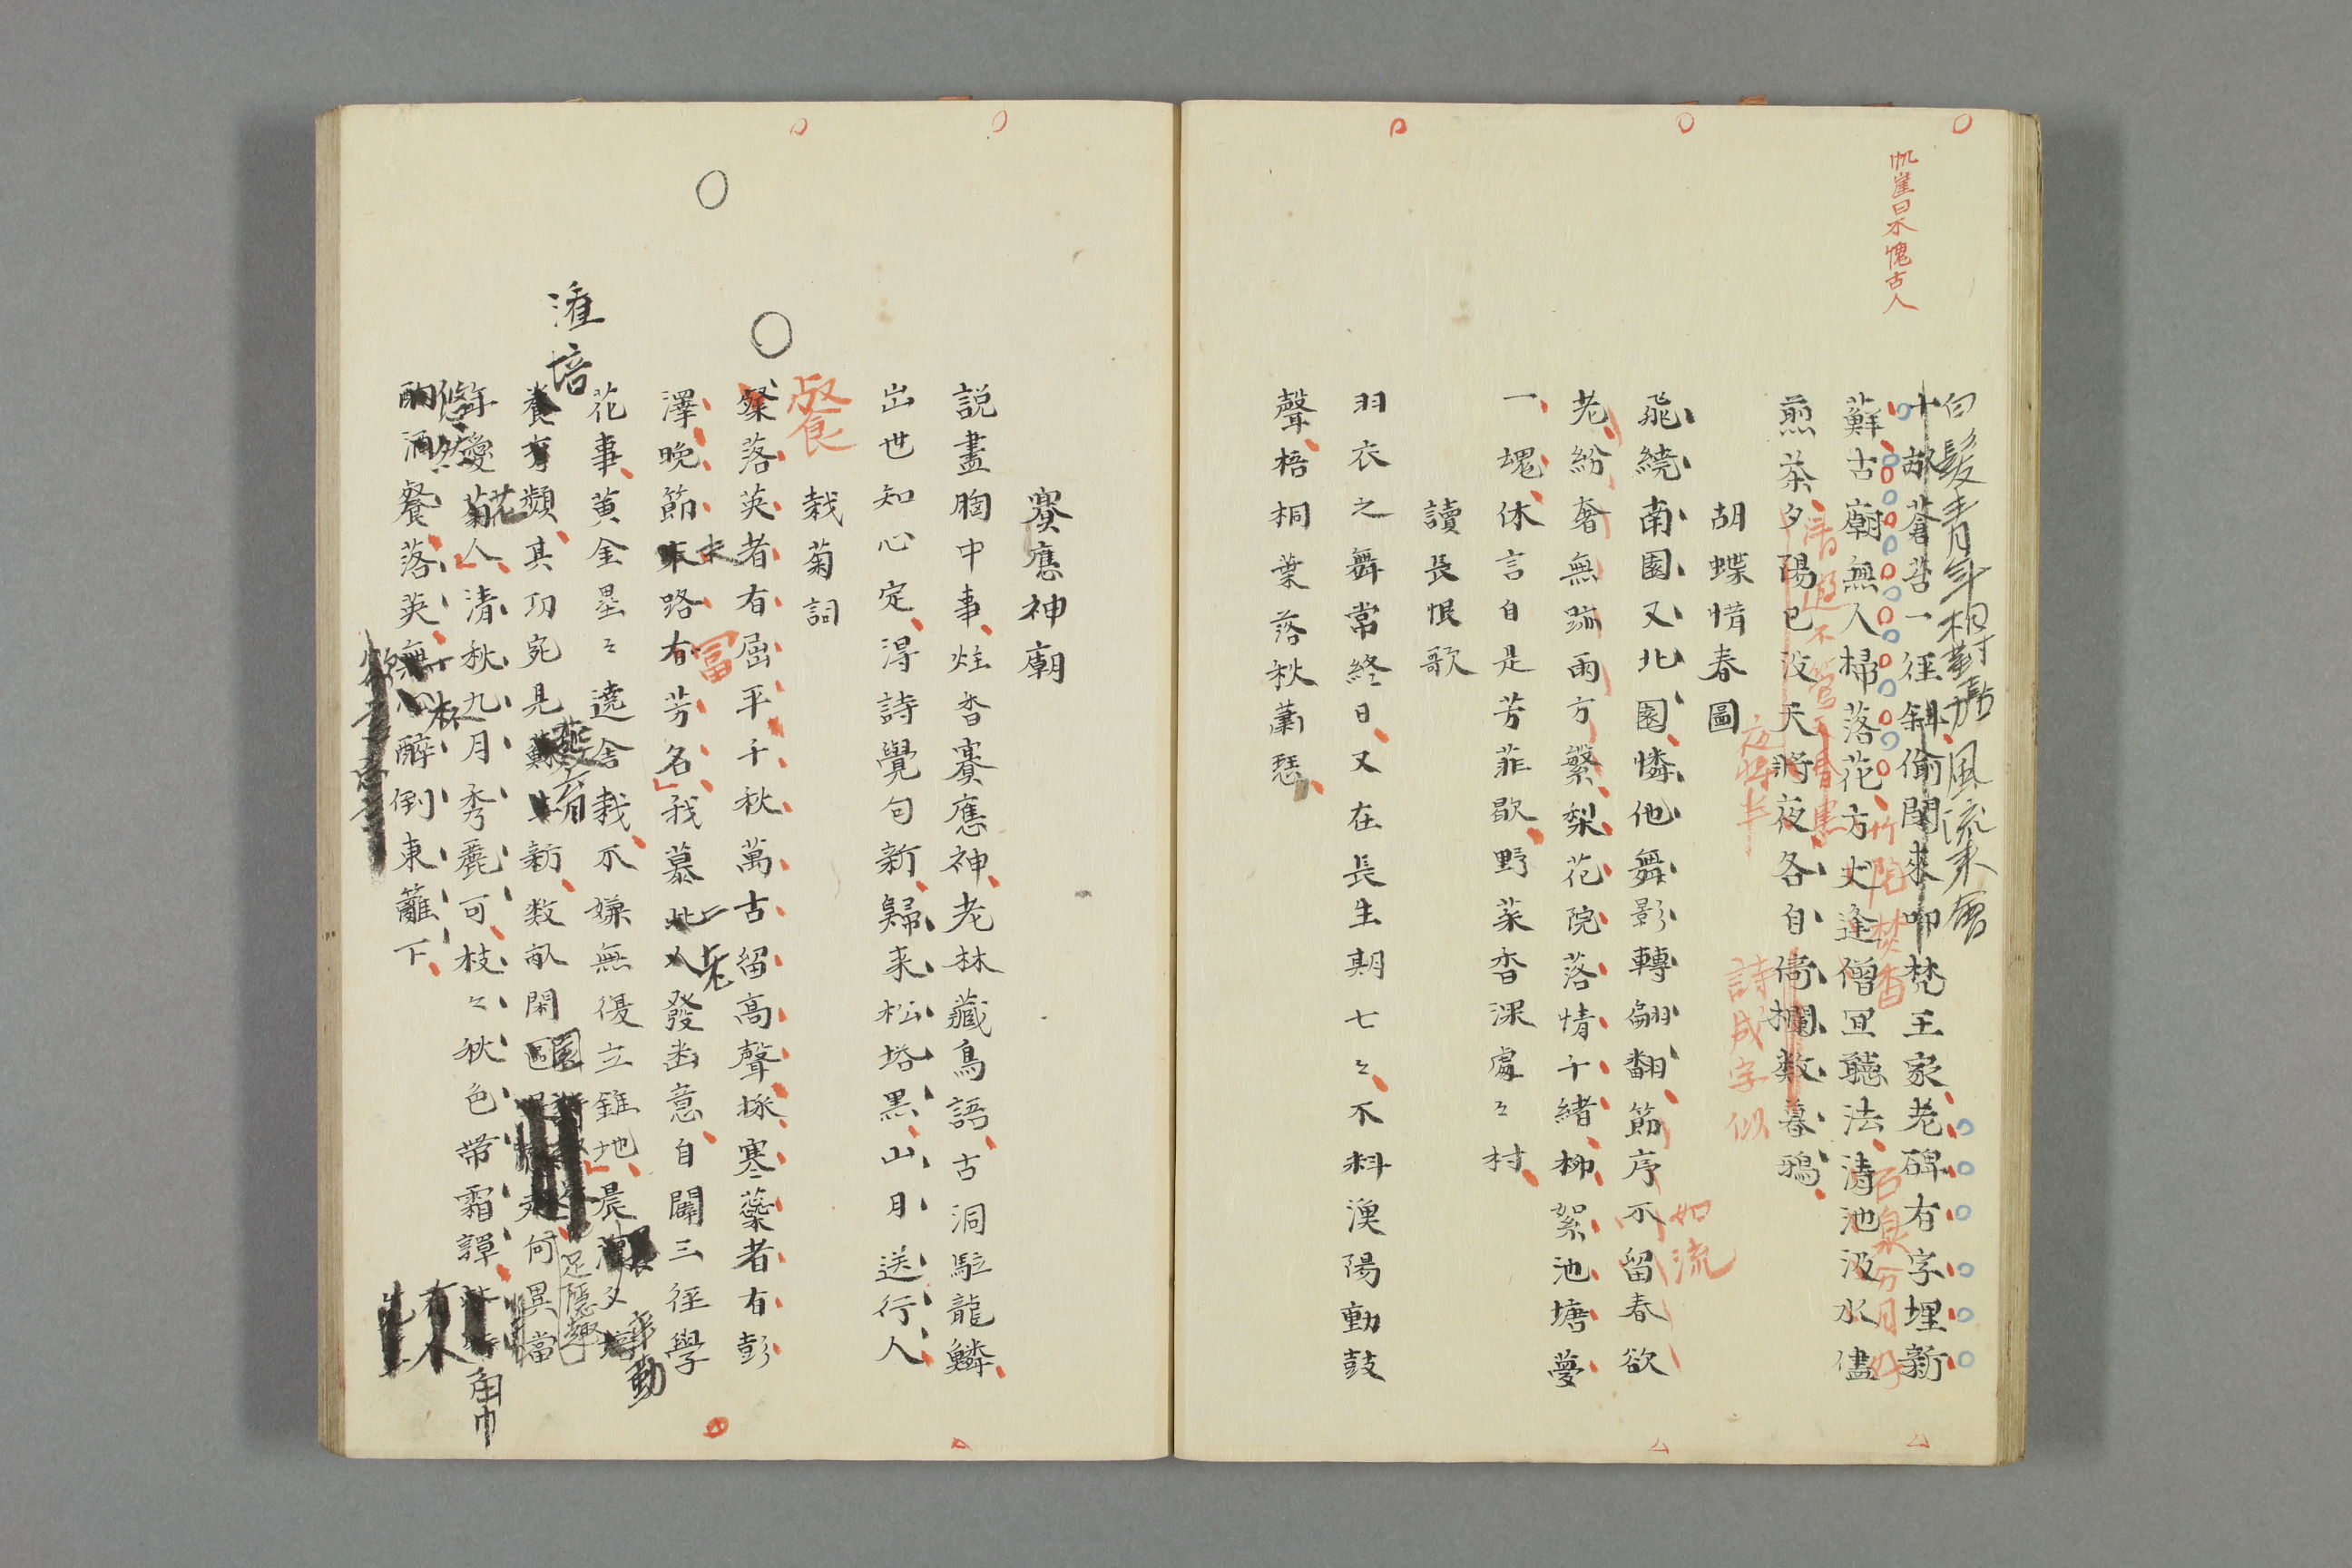 帆崖曰不愧古人
白髮青年相對嘉風流來會
十畝蒼苔一徑斜偷閑來叩梵王家老碑有字埋新
蘚古廟無人掃落花方丈逢僧冝聽法清池汲水儘
竹院焚香 石泉分月好
煎茶夕陽已沒天將夜各自倚欄数暮鴉
清遊不管 香罵
夜將半 詩成字似
胡蝶惜春圖
如流
飛繞南園又北園憐他舞影轉翩翻節序不留春欲
老紛奢無跡雨方繁梨花院落情千緒柳絮池塘夢
一塊休言自是芳菲歇野菜杳深處々村
讀長恨歌
羽衣之舞常終日又在長生期七々不料漁陽動鼓
聲梧桐葉落秋蕭瑟
賽應神廟
説盡胸中事炷香賽應神老林藏鳥語古洞駐龍鱗
出世知心定淂詩覺句新歸来松塔黒山月送行人
栽菊詞
餐
粲落英者有屈平千秋萬古留高聲採寒蘂者有彭
澤晚節末路有芳名我慕此人發幽意自闢三徑學
末 富 二老
花事黄金星々遶舍栽不嫌無復立錐地晨 夕
灌培 養育 幸勤
養有類其功宛見蘇 新数畝閑 何異當
園 足隱趣
年愛菊人清秋九月秀麗可枝々秋色帶霜譚
悠然 花 角巾
酌酒餐落英 醉倒東籬下
一杯 有